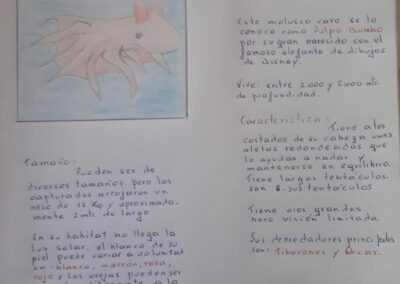 Tamaño:
Pueden ser de
diversos tamaños, pero los
capturados arrojaron un
peso de 13 Kg y aproximada.
mente 2 mts. de largo
En su habitat no llega la
Luz solar, el blanco de su
piel puede variar a voluntad
en: blanco, marrón, rosa,
rojo y las orejas pueden ser
Este molusco raro se lo
conoce como Pulpo Dumbo
por su gran parecido con el
famoso elefante de dibujos
de Disney.
Vive: entre 2.000 y 5.000 mts.
de profundidad.
Característica:
Tiene a los
costados de su cabeza unas
aletas redondeadas que
la ayudan a nadar y
mantenerse en equilibrio.
Tiene largos tentaculos
son 8 sus tentaculos
Tiene ojos grandes
pero visión limitada.
Sus depredadores principales
son: Tiburones y Orcas.